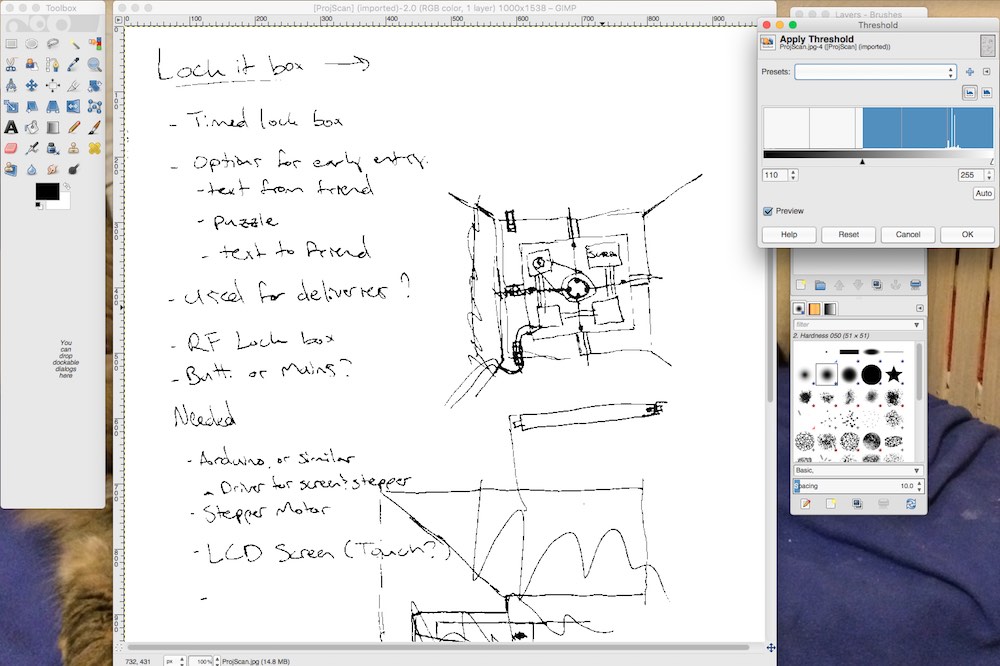 Toolbox
[ProjScan] (imported)-2.0 (RGB color, 1 layer) 1000x1538 – GIMP
Layers - Brushes
Threshold
Apply Threshold
ProjScan.jpg-4 ([ProjScan] (imported))
Presets:
110
255
Auto
Preview
Help
Reset
Cancel
OK
0
100
200
300
400
500
600
700
800
900
Lock it box
- Timed lock box
- Options for early entry:
- text from friend
- puzzle
- text to friend
- Used for deliveries?
- RF Lock box
- Batt. or Mains?
Needed
- Arduino, or similar
- Driver for screen? stepper
- Stepper Motor
- LCD Screen (Touch?)
-
You
can
drop
dockable
dialogs
here
filter
2. Hardness 050 (51 × 51)
Basic,
Spacing
10.0
732, 431
px
100%
ProjScan.jpg (14.8 MB)